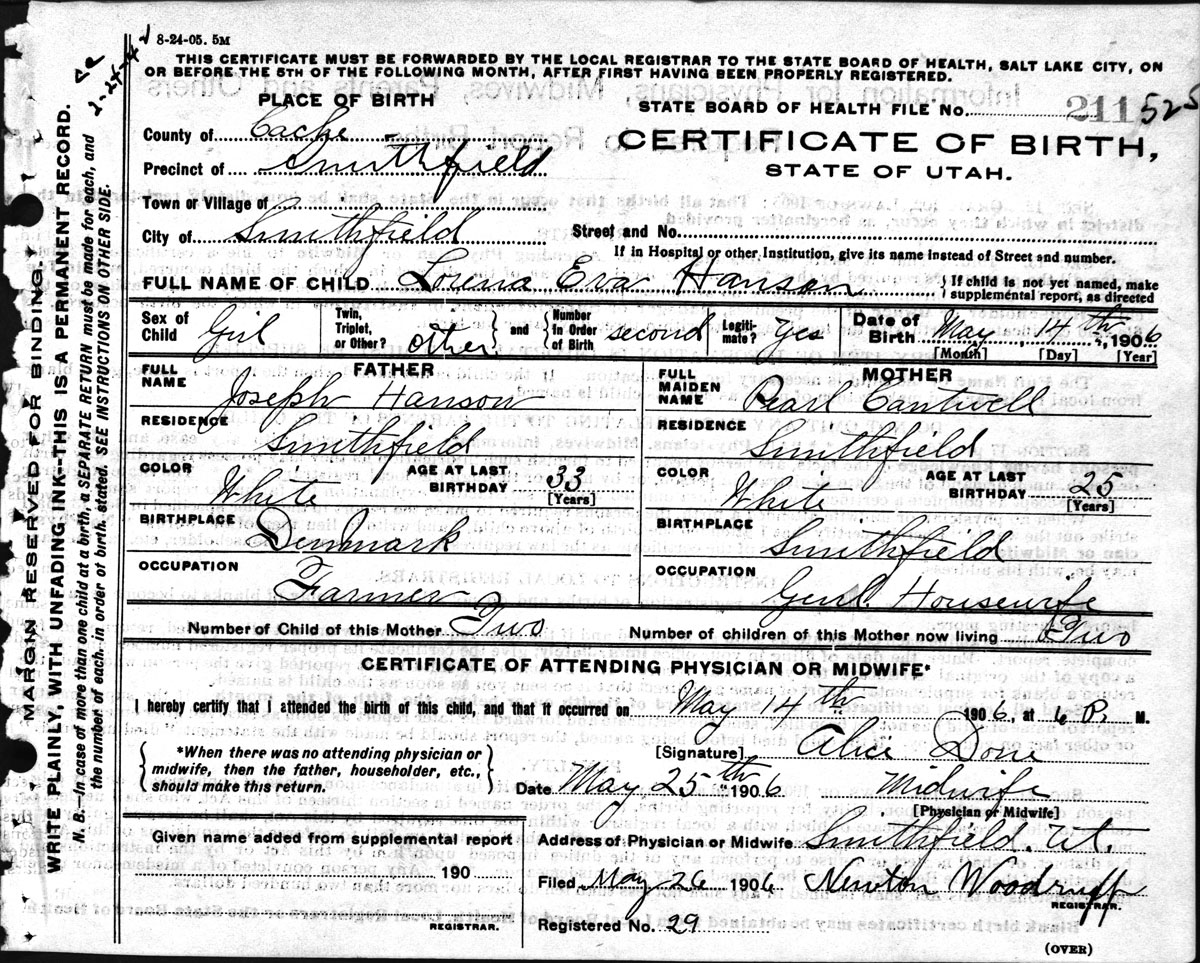 8-24-05. 5M
THIS CERTIFICATE MUST BE FORWARDED BY THE LOCAL REGISTRAR TO THE STATE BOARD OF HEALTH, SALT LAKE CITY, ON
OR BEFORE THE 5TH OF THE FOLLOWING MONTH, AFTER FIRST HAVING BEEN PROPERLY REGISTERED.
PLACE OF BIRTH
STATE BOARD OF HEALTH FILE No. 211 525
County of Cache
CERTIFICATE OF BIRTH,
STATE OF UTAH.
Precinct of Smithfield
Town or Village of
City of Smithfield Street and No.
If in Hospital or other Institution, give its name instead of Street and number.
FULL NAME OF CHILD Lorena Eva Hanson { If child is not yet named, make
supplemental report, as directed
Sex of Child Girl Twin, Triplet, or Other? other and Number In Order of Birth second Legiti-mate? yes Date of Birth May, 14th, 1906
[Month] [Day] [Year]
FATHER MOTHER
FULL NAME Joseph Hanson FULL MAIDEN NAME Pearl Cantwell
RESIDENCE Smithfield RESIDENCE Smithfield
COLOR White AGE AT LAST BIRTHDAY 33 [Years] COLOR White AGE AT LAST BIRTHDAY 25 [Years]
BIRTHPLACE Denmark BIRTHPLACE Smithfield
OCCUPATION Farmer OCCUPATION Genl. Housewife
Number of Child of this Mother Two Number of children of this Mother now living Two
CERTIFICATE OF ATTENDING PHYSICIAN OR MIDWIFE*
I hereby certify that I attended the birth of this child, and that it occurred on May 14th 1906, at 6 P. M.
{ *When there was no attending physician or
midwife, then the father, householder, etc.,
should make this return. }
[Signature] Alice Done
Date May 25th 1906 Midwife
[Physician or Midwife]
Given name added from supplemental report
190
REGISTRAR.
Address of Physician or Midwife Smithfield. Ut.
Filed May 26 1906 Newton Woodruff
REGISTRAR.
Registered No. 29
(OVER)
MARGIN RESERVED FOR BINDING.
WRITE PLAINLY, WITH UNFADING INK-THIS IS A PERMANENT RECORD.
N. B.—In case of more than one child at a birth, a SEPARATE RETURN must be made for each, and
the number of each, in order of birth, stated. SEE INSTRUCTIONS ON OTHER SIDE.